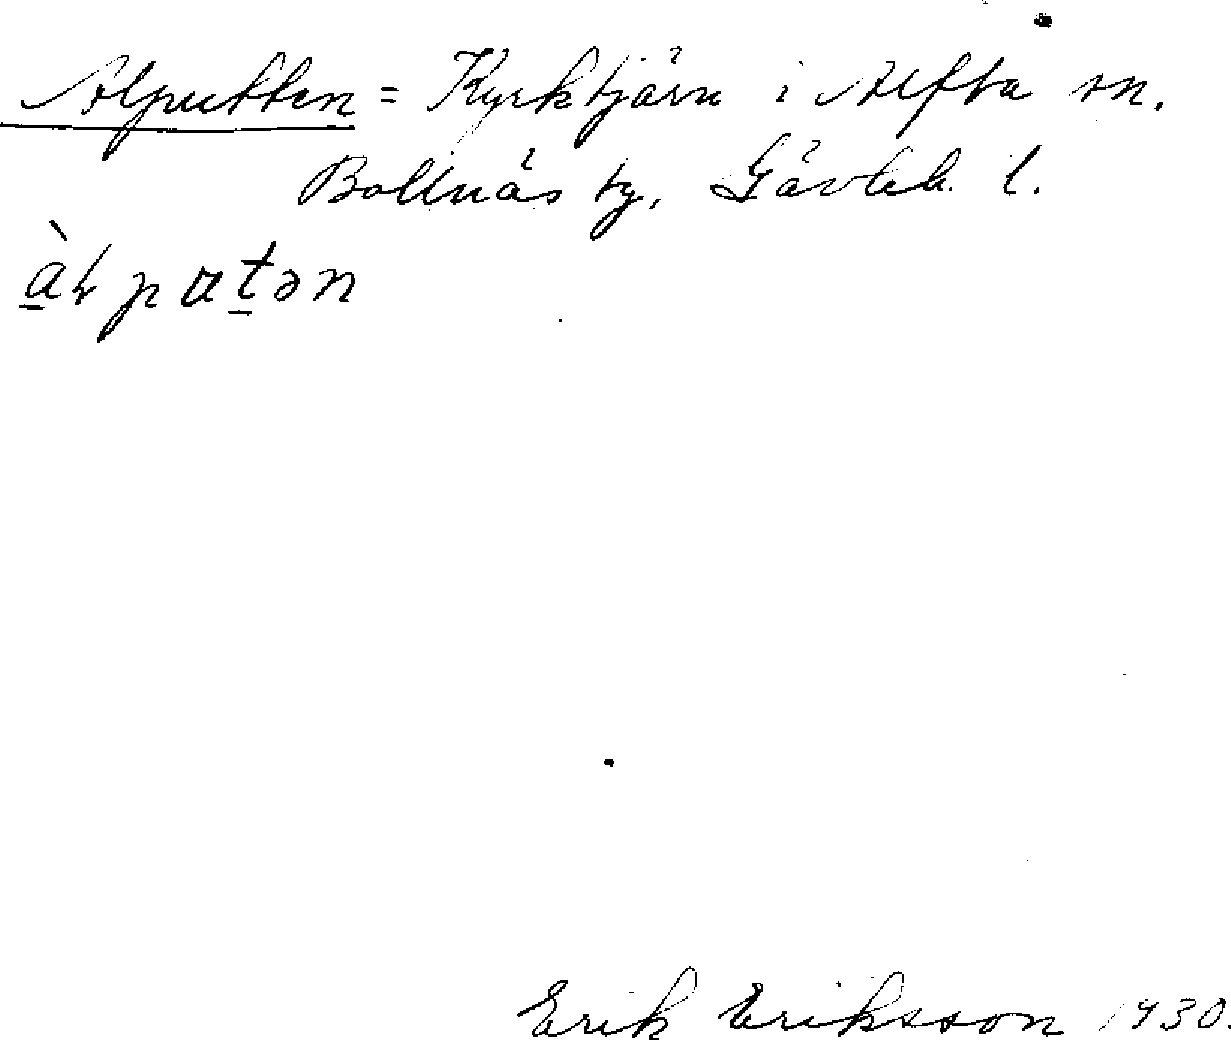 Alputten = Kyrktjärn i Alfta sn.
Bollnäs tg, Gävleb. l.
Erik Eriksson 1930.